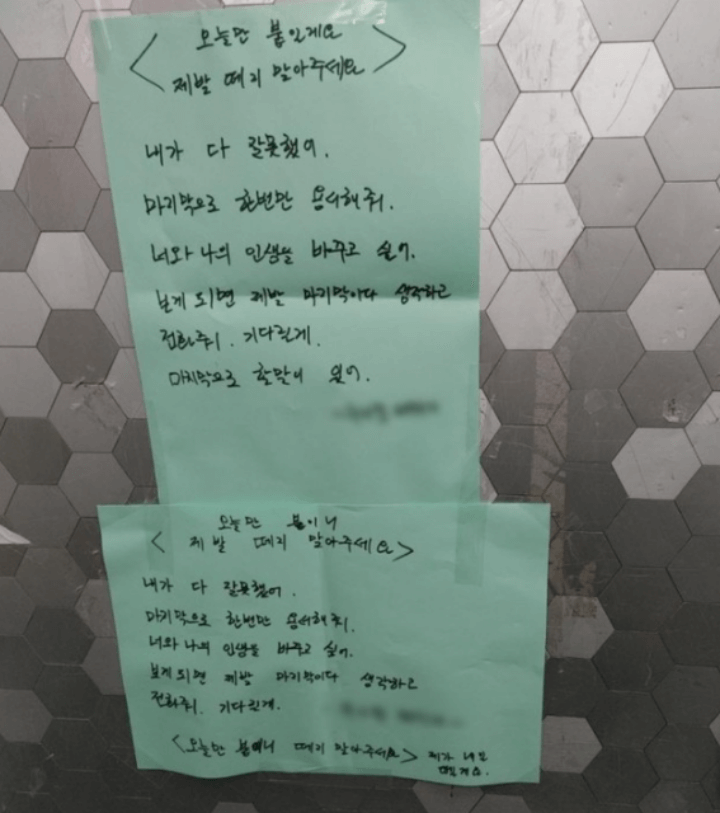 오늘만 붙일게요
<제발 떼지 말아주세요>
내가 다 잘못했어.
마지막으로 한번만 용서해줘.
너와 나의 인생을 바꾸고 싶어.
보게 되면 제발 마지막이다 생각하고
전화줘. 기다릴게.
마지막으로 할말이 있어.
오늘만 붙이니
<제발 떼지 말아주세요>
내가 다 잘못했어.
마지막으로 한번만 용서해줘.
너와 나의 인생을 바꾸고 싶어.
보게 되면 제발 마지막이다 생각하고
전화줘. 기다릴게.
<오늘만 붙이니 떼지 말아주세요> 제가